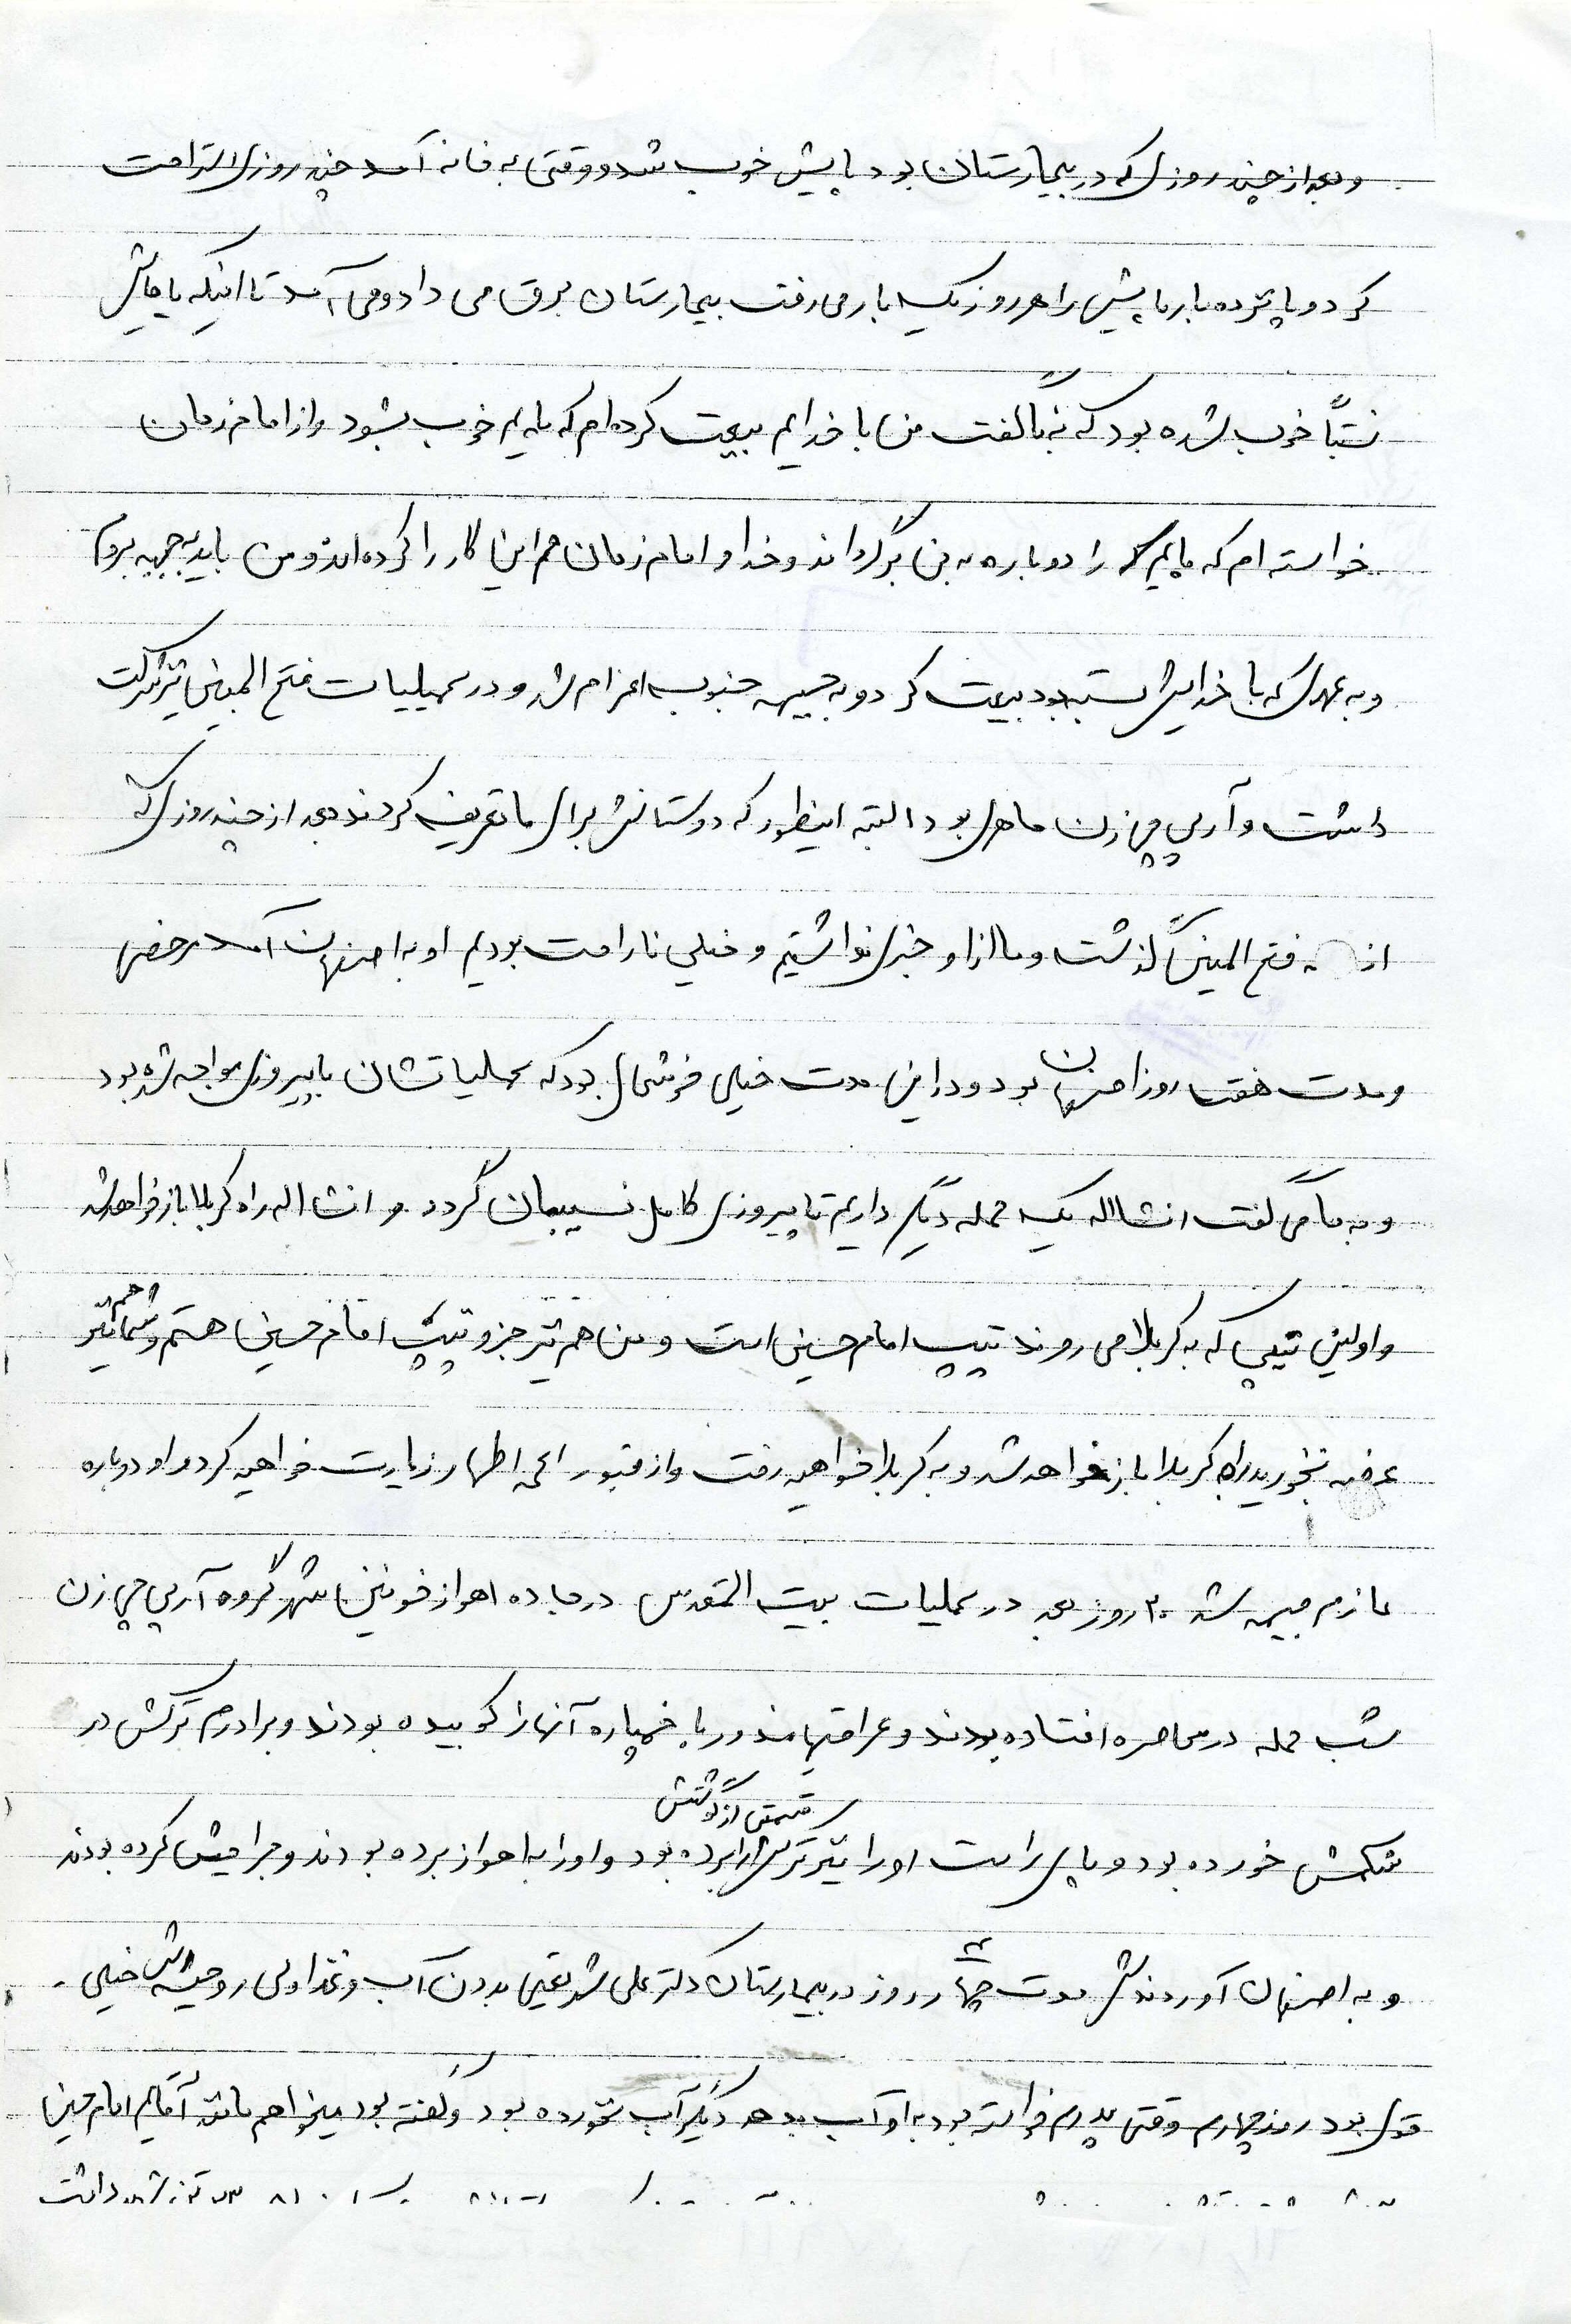 و بعد از چند روزی که در بیمارستان بود پایش خوب شد و وقتی به خانه آمد چند روزی استراحت
کرد و پانزده بار پایش را هر روز یک بار می رفت بیمارستان برق می داد و می آمد تا اینکه پایش
نسبتاً خوب شده بود که به ما گفت من با خدایم بیعت کرده ام که پایم خوب بشود و از امام زمان
خواسته ام که پایم را دوباره به من برگرداند و خدا و امام زمان هم این کار را کرده اند و من باید به جبهه بروم
و به عهدی که با خدایش بسته بود بیعت کرد و به جبهه جنوب اعزام شد و در عملیات فتح المبین نیز شرکت
داشت و آرپی چی زن ماهری بود البته اینطور که دوستانش برای ما تعریف کردند بعد از چند روزی که
از فتح المبین گذشت و ما از او خبری نداشتیم و خیلی ناراحت بودیم او به اصفهان آمد مرخصی
و مدت هفت روز اصفهان بود و در این مدت خیلی خوشحال بود که عملیاتشان با پیروزی مواجه شده بود
و به ما می گفت انشااله یک حمله دیگر داریم تا پیروزی کامل نسیبمان گردد و انشااله راه کربلا باز خواهد شد
و اولین تیپی که به کربلا می روند تیپ امام حسین است و من هم نیز جزو تیپ امام حسین هستم و شما هم نیز
غصه نخورید راه کربلا باز خواهد شد و به کربلا خواهید رفت و از قبور ائمه اطهار زیارت خواهید کرد و او دوباره
عازم جبهه شد ۲۰ روز بعد در عملیات بیت المقدس در جاده اهواز خونین شهر گروه آرپی چی زن
شب حمله در محاصره افتاده بودند و عراقیها مزدور با خمپاره آنها را کوبیده بودند و برادرم ترکش در
شکمش خورده بود و پای راست او را نیز ترکش قسمتی از گوشتش را برده بود و او را به اهواز برده بودند و جراحیش کرده بودند
و به اصفهان آوردندش مدت چهار روز در بیمارستان دکتر علی شریعتی بدون آب و غذا ولی روحیه اش خیلی
قوی بود روز چهارم وقتی پدرم خواسته بود به او آب بدهد دیگر آب نخورده بود و گفته بود میخواهم مانند آقایم امام حسین
داشت